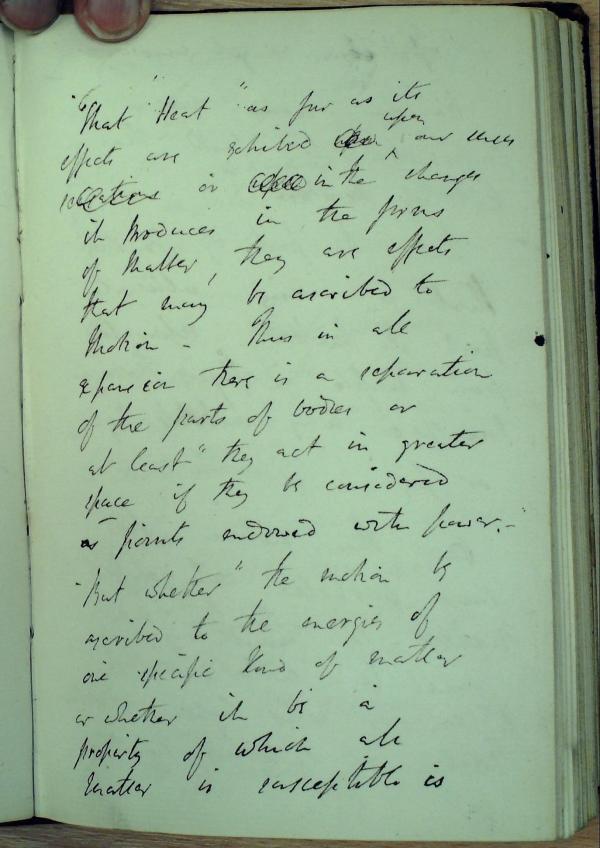 "That "Heat "as far as its
effects are exhibited upon our senses
or in the changes
it produces in the forms
of Matter, they are effects
that may be ascribed to
Motion - Thus in all
expansion there is a separation
of the parts of bodies or
at least "they act in greater
space if they be considered
as points endowed with power. -"
"But whether "the motion be
ascribed to the energies of
one specific kind of matter
or whether it be a
property of which all
matter is susceptible is